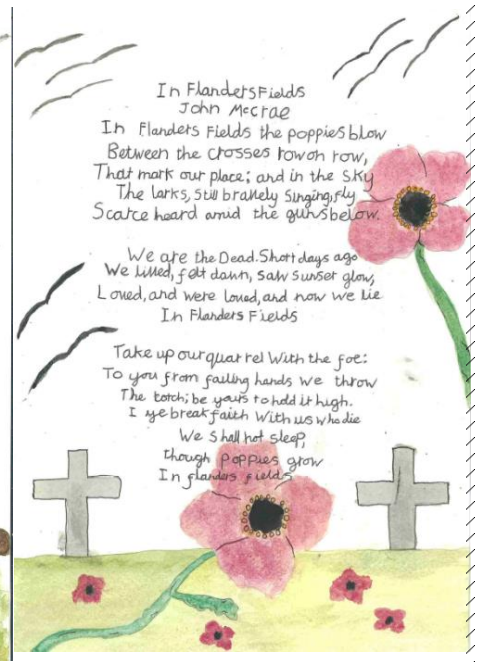 In Flanders Fields
John McCrae
In Flanders Fields the poppies blow
Between the crosses row on row,
That mark our place; and in the sky
The larks, still bravely singing, fly
Scarce heard amid the guns below.
We are the Dead. Short days ago
We lived, felt dawn, saw sunset glow,
Loved, and were loved, and now we lie
In Flanders Fields
Take up our quarrel with the foe:
To you from failing hands we throw
The torch; be yours to hold it high.
I ye break faith with us who die
We shall not sleep,
though poppies grow
In flanders fields